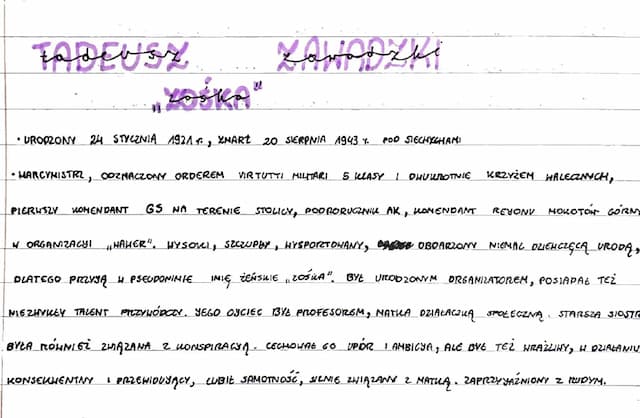 TADEUSZ ZAWADZKI
„ZOŚKA"
• URODZONY 24 STYCZNIA 1921 r., ZMARŁ 20 SIERPNIA 1943 r. POD SIECZYCHAMI
• HARCMISTRZ, ODZNACZONY ORDEREM VIRTUTTI MILITARI 5 KLASY I DWUKROTNIE KRZYŻEM WALECZNYCH,
PIERWSZY KOMENDANT GS NA TERENIE STOLICY, PODPORUCZNIK AK, KOMENDANT REJONU MOKOTÓW GÓRNY
W ORGANIZACJI „WAWER". WYSOKI, SZCZUPŁY, WYSPORTOWANY, OBDARZONY NIEMAL DZIEWCZĘCĄ URODĄ,
DLATEGO PRZYJĄ W PSEUDONIMIE IMIĘ ŻEŃSKIE „ZOŚKA". BYŁ URODZONYM ORGANIZATOREM, POSIADAŁ TEŻ
NIEZWYKŁY TALENT PRZYWÓDCZY. JEGO OJCIEC BYŁ PROFESOREM, MATKA DZIAŁACZKĄ SPOŁECZNĄ. STARSZA SIOSTRA
BYŁA RÓWNIEŻ ZWIĄZANA Z KONSPIRACJĄ. CECHOWAŁ GO UPÓR I AMBICJA, ALE BYŁ TEŻ WRAŻLIWY, W DZIAŁANIU
KONSEKWENTNY I PRZEWIDUJĄCY, LUBIŁ SAMOTNOŚĆ, SILNIE ZWIĄZANY Z MATKĄ. ZAPRZYJAŹNIONY Z RUDYM.